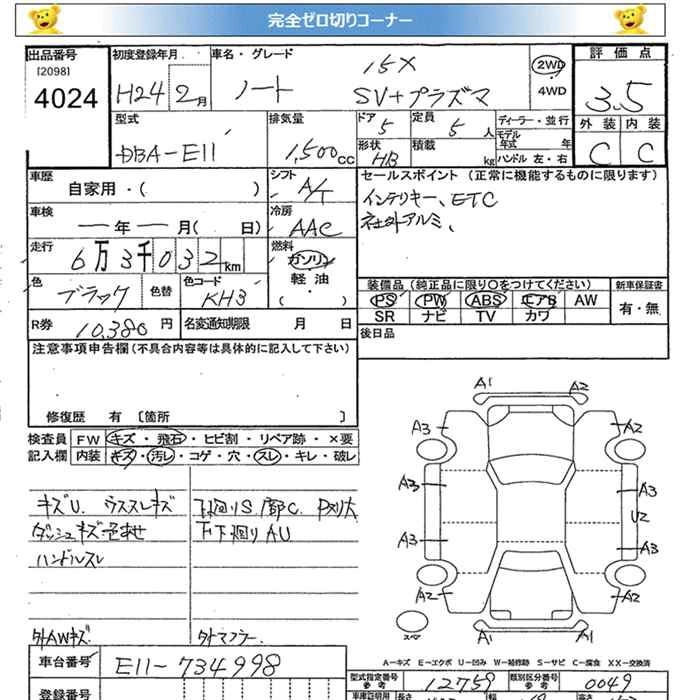 完全ゼロ切りコーナー
出品番号 初度登録年月 車名・グレード 評価点
[2098]
4024 H24 2月 ノート 15X SV+プラズマ 2WD 4WD 3.5
型式 排気量 ドア 定員 ディーラー・並行 外装 内装
DBA-E11 1,500cc 5 5人 モデル年式 年 C C
形状 積載
HB kg ハンドル 左・右
車歴 自家用・( ) シフト A/T セールスポイント(正常に機能するものに限ります)
インテリキー、ETC
社外アルミ、
車検 ー年ー月( 日) 冷房 AAC
走行 6万3千032km 燃料 ガソリン 軽油 ・( )
色 ブラック 色替 色コード KH3
装備品(純正品に限り○をつけてください) 新車保証書
PS PW ABS エアB AW 有・無
SR ナビ TV カワ
R券 10,380円 名変通知期限 月 日
後日品
注意事項申告欄(不具合内容等は具体的に記入して下さい)
修復歴 有 〔箇所 〕
検査員 FW キズ・飛石・ヒビ割・リペア跡・×要
記入欄 内装 キズ・汚レ・コゲ・穴・スレ・キレ・破レ
キズU. ウススレキズ
ダッシュキズ色あせ
ハンドルスレ
外AWキズ
下回りS.腐C.
下下廻りAU
外マフラー
A1 A2
A3 A2
A3 A3
U2
A3 A3
A2 A2
A1 A1
スペア
A-キズ E-エクボ U-凹み W-補修跡 S-サビ C-腐食 XX-交換済
車台番号 E11-734998
型式指定番号 参考 12759 類別区分番号 参考 0049
登録番号
車庫証明用 長さ 幅 高さ